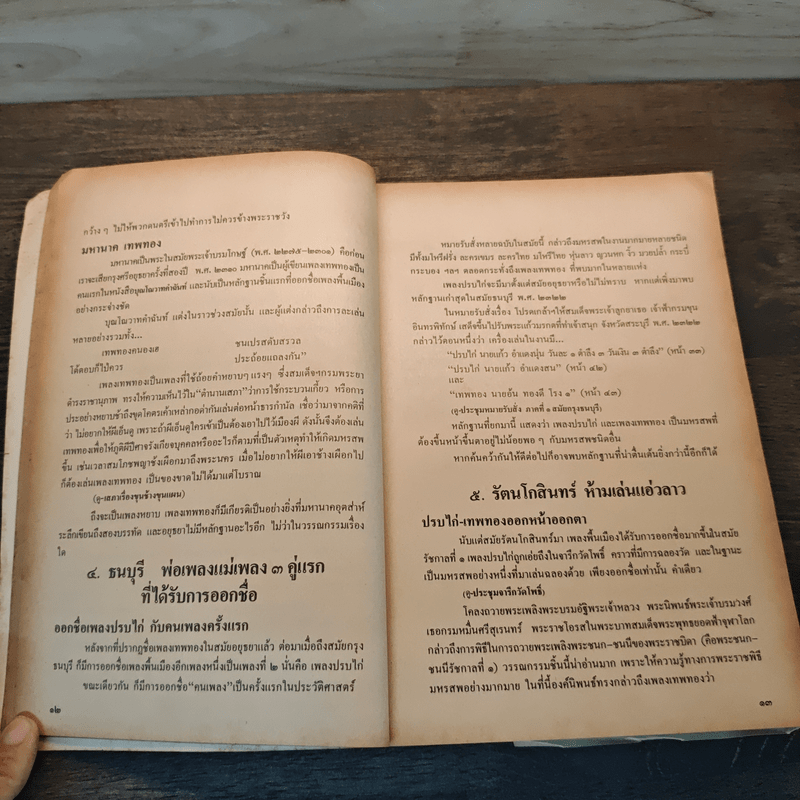 กว้าง ๆ ไม่ให้พวกดนตรีเข้าไปทำการไม่ควรข้างพระราชวัง
มหานาค เทพทอง
มหานาคเป็นพระในสมัยพระเจ้าบรมโกษฐ์ (พ.ศ. ๒๒๗๕-๒๓๐๑) คือก่อน
เราจะเสียกรุงศรีอยุธยาครั้งที่สองปี พ.ศ. ๒๓๑๐ มหานาคเป็นผู้เขียนเพลงเทพทองเป็น
คนแรกในหนังสือบุณโณวาทคำฉันท์ และนับเป็นหลักฐานชิ้นแรกที่ออกชื่อเพลงพื้นเมือง
อย่างกระจ่างชัด
บุณโณวาทคำฉันท์ แต่งในราวช่วงสมัยนั้น และผู้แต่งกล่าวถึงการละเล่น
หลายอย่างรวมทั้ง...
เทพทองคนองเฮ ชนเปรสดับสรวล
ได้ตอบก็ไป่ควร ประถ้อยแถลงกัน"
เพลงเทพทองเป็นเพลงที่ใช้ถ้อยคำหยาบๆ แรงๆ ซึ่งสมเด็จฯกรมพระยา
ดำรงราชานุภาพ ทรงให้ความเห็นไว้ใน"ตำนานเสภา"ว่าการใช้กระบวนเกี้ยว หรือการ
ประอย่างหยาบช้าถึงขุดโคตรเค้าเหล่ากอด่ากันเล่นต่อหน้าธารกำนัล เชื่อว่ามาจากคติที่
ว่า ไม่อยากให้ผีเอ็นดู เพราะถ้าผีเอ็นดูใครเข้าเป็นต้องเอาไปไว้เมืองผี ดังนั้นจึงต้องเล่น
เทพทองเพื่อให้ภูติผีปีศาจรังเกียจบุคคลหรืออะไรก็ตามที่เป็นตัวเหตุทำให้เกิดมหรสพ
ขึ้น เช่นเวลาสมโภชพญาช้างเผือกมาถึงพระนคร เมื่อไม่อยากให้ผีเอาช้างเผือกไป
ก็ต้องเล่นเพลงเทพทอง เป็นของขาดไม่ได้มาแต่โบราณ
(ดู-เสภาเรื่องขุนช้างขุนแผน)
ถึงจะเป็นเพลงหยาบ เพลงเทพทองก็มีเกียรติเป็นอย่างยิ่งที่มหานาคอุตส่าห์
ระลึกเขียนถึงสองบรรทัด และอยุธยาไม่มีหลักฐานอะไรอีก ไม่ว่าในวรรณกรรมเรื่อง
ใด
๔. ธนบุรี พ่อเพลงแม่เพลง ๓ คู่แรก
ที่ได้รับการออกชื่อ
ออกชื่อเพลงปรบไก่ กับคนเพลงครั้งแรก
หลังจากที่ปรากฏชื่อเพลงเทพทองในสมัยอยุธยาแล้ว ต่อมาเมื่อถึงสมัยกรุง
ธนบุรี ก็มีการออกชื่อเพลงพื้นเมืองอีกเพลงหนึ่งเป็นเพลงที่ ๒ นั่นคือ เพลงปรบไก่
ขณะเดียวกัน ก็มีการออกชื่อ"คนเพลง"เป็นครั้งแรกในประวัติศาสตร์
๑๒
หมายรับสั่งหลายฉบับในสมัยนี้ กล่าวถึงมหรสพในงานมากมายหลายชนิด
มีทั้งมโหรีฝรั่ง ละครเขมร ละครไทย มโหรีไทย หุ่นลาว ญวนหก งิ้ว มวยปล้ำ กระบี่
กระบอง ฯลฯ ตลอดกระทั่งถึงเพลงเทพทอง ที่พบมากในหลายแห่ง
เพลงปรบไก่จะมีมาตั้งแต่สมัยอยุธยาหรือไม่ไม่ทราบ หากแต่เพิ่งมาพบ
หลักฐานเก่าสุดในสมัยธนบุรี พ.ศ. ๒๓๒๒
ในหมายรับสั่งเรื่อง โปรดเกล้าฯให้สมเด็จพระเจ้าลูกยาเธอ เจ้าฟ้ากรมขุน
อินทรพิทักษ์ เสด็จขึ้นไปรับพระแก้วมรกตที่ท่าเจ้าสนุก จังหวัดสระบุรี พ.ศ. ๒๓๒๒
กล่าวไว้ตอนหนึ่งว่า เครื่องเล่นในงานมี...
"ปรบไก่ นายแก้ว อำแดงนุ่น วันละ ๑ ตำลึง ๓ วันเงิน ๓ ตำลึง" (หน้า ๓๓)
"ปรบไก่ นายแก้ว อำแดงสน" (หน้า ๔๒)
และ
"เทพทอง นายอ้น ทองดี โรง ๑" (หน้า ๔๓)
(ดู-ประชุมหมายรับสั่ง ภาคที่ ๑ สมัยกรุงธนบุรี)
หลักฐานที่ยกมานี้ แสดงว่า เพลงปรบไก่ และเพลงเทพทอง เป็นมหรสพที่
ต้องขึ้นหน้าขึ้นตาอยู่ไม่น้อยพอ ๆ กับมหรสพชนิดอื่น
หากค้นคว้ากันให้ดีต่อไปก็อาจพบหลักฐานที่น่าตื่นเต้นยิ่งกว่านี้อีกก็ได้
๕. รัตนโกสินทร์ ห้ามเล่นแอ่วลาว
ปรบไก่-เทพทองออกหน้าออกตา
นับแต่สมัยรัตนโกสินทร์มา เพลงพื้นเมืองได้รับการออกชื่อมากขึ้นในสมัย
รัชกาลที่ ๑ เพลงปรบไก่ถูกเอ่ยถึงในจารึกวัดโพธิ์ คราวที่มีการฉลองวัด และในฐานะ
เป็นมหรสพอย่างหนึ่งที่มาเล่นฉลองด้วย เพียงออกชื่อเท่านั้น คำเดียว
(ดู-ประชุมจารึกวัดโพธิ์)
โคลงถวายพระเพลิงพระบรมอัฐิพระเจ้าหลวง พระนิพนธ์พระเจ้าบรมวงศ์
เธอกรมหมื่นศรีสุเรนทร์ พระราชโอรสในพระบาทสมเด็จพระพุทธยอดฟ้าจุฬาโลก
กล่าวถึงการพิธีในการถวายพระเพลิงพระชนก-ชนนีของพระราชบิดา (คือพระชนก-
ชนนีรัชกาลที่ ๑) วรรณกรรมชิ้นนี้น่าอ่านมาก เพราะให้ความรู้ทางการพระราชพิธี
มหรสพอย่างมากมาย ในที่นี้องค์นิพนธ์ทรงกล่าวถึงเพลงเทพทองว่า
๑๓